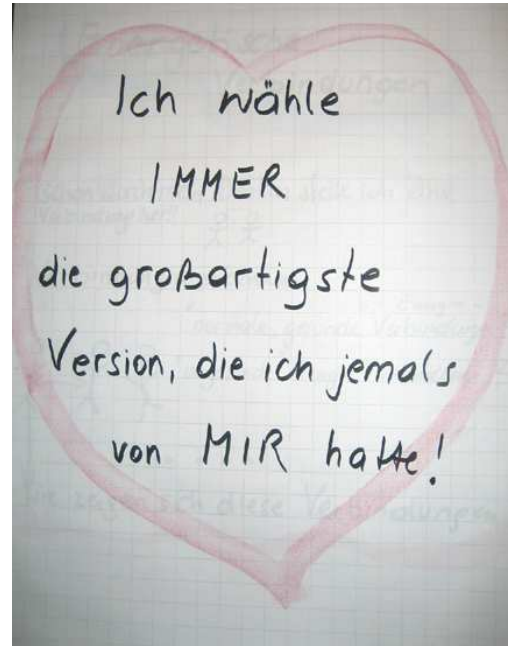 Ich wähle
IMMER
die großartigste
Version, die ich jemals
von MIR hatte!